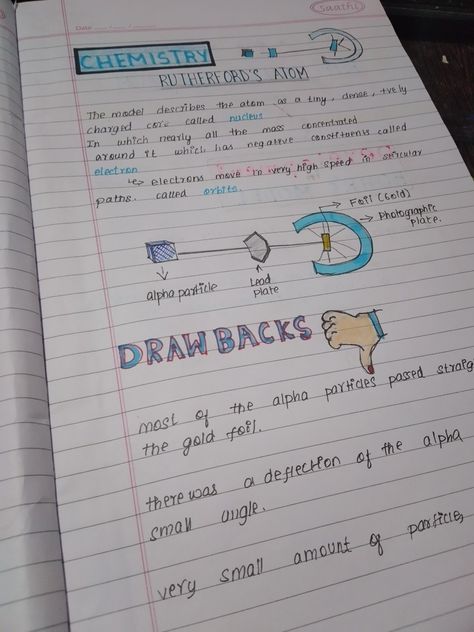 saathi
Date
CHEMISTRY
RUTHERFORD'S ATOM
The model describes the atom as a tiny, dense, +vely
charged core called nucleus
In which nearly all the mass concentrated
around it which has negative constituents called
electron
electrons move in very high speed in
paths. called orbits.
Foil (Gold)
Photographic
plate.
alpha particle
Lead
plate
DRAWBACKS
most of the alpha particles passed straig
the gold foil.
there was a deflection of the alpha
small angle.
very small amount of particle